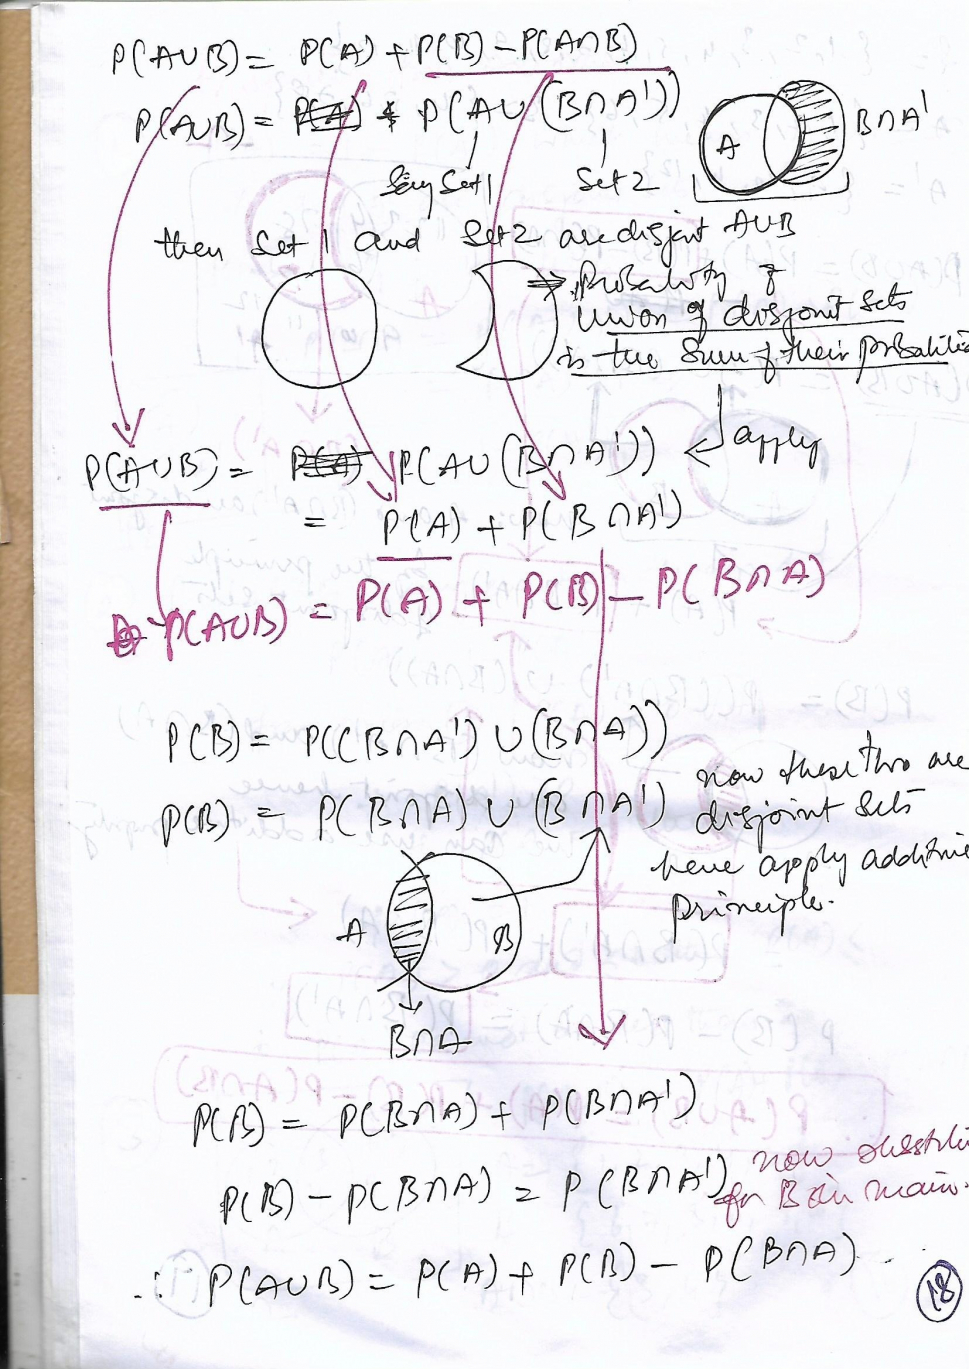 P(A∪B) = P(A) + P(B) - P(A∩B)
P(A∪B) = P(A∪(B∩A'))
A
B∩A'
Say Set 1
Set 2
A∪B
then Set 1 and Set 2 are disjoint
⇒ Probability of
Union of disjoint sets
is the Sum of their probabilities
P(A∪B) = P(A∪(B∩A')) ← apply
= P(A) + P(B∩A')
P(A∪B) = P(A) + P(B) - P(B∩A)
P(B) = P((B∩A') ∪ (B∩A))
P(B) = P(B∩A) ∪ (B∩A')
now these two are
disjoint sets
apply additive
principle.
A
B
B∩A
P(B) = P(B∩A) + P(B∩A')
P(B) - P(B∩A) = P(B∩A')
now
for B in main.
∴ P(A∪B) = P(A) + P(B) - P(B∩A).
18